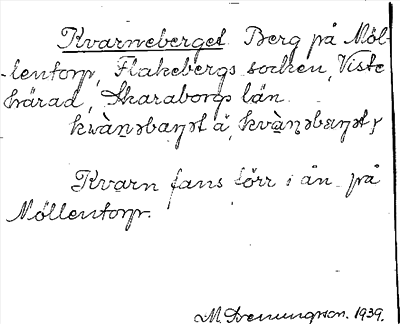 Kvarneberget. Berg på Möl-
-lentorp, Flakebergs socken, Viste
härad, Skaraborgs län.
Kvarn fans förr i ån på
Möllentorp.
1939.